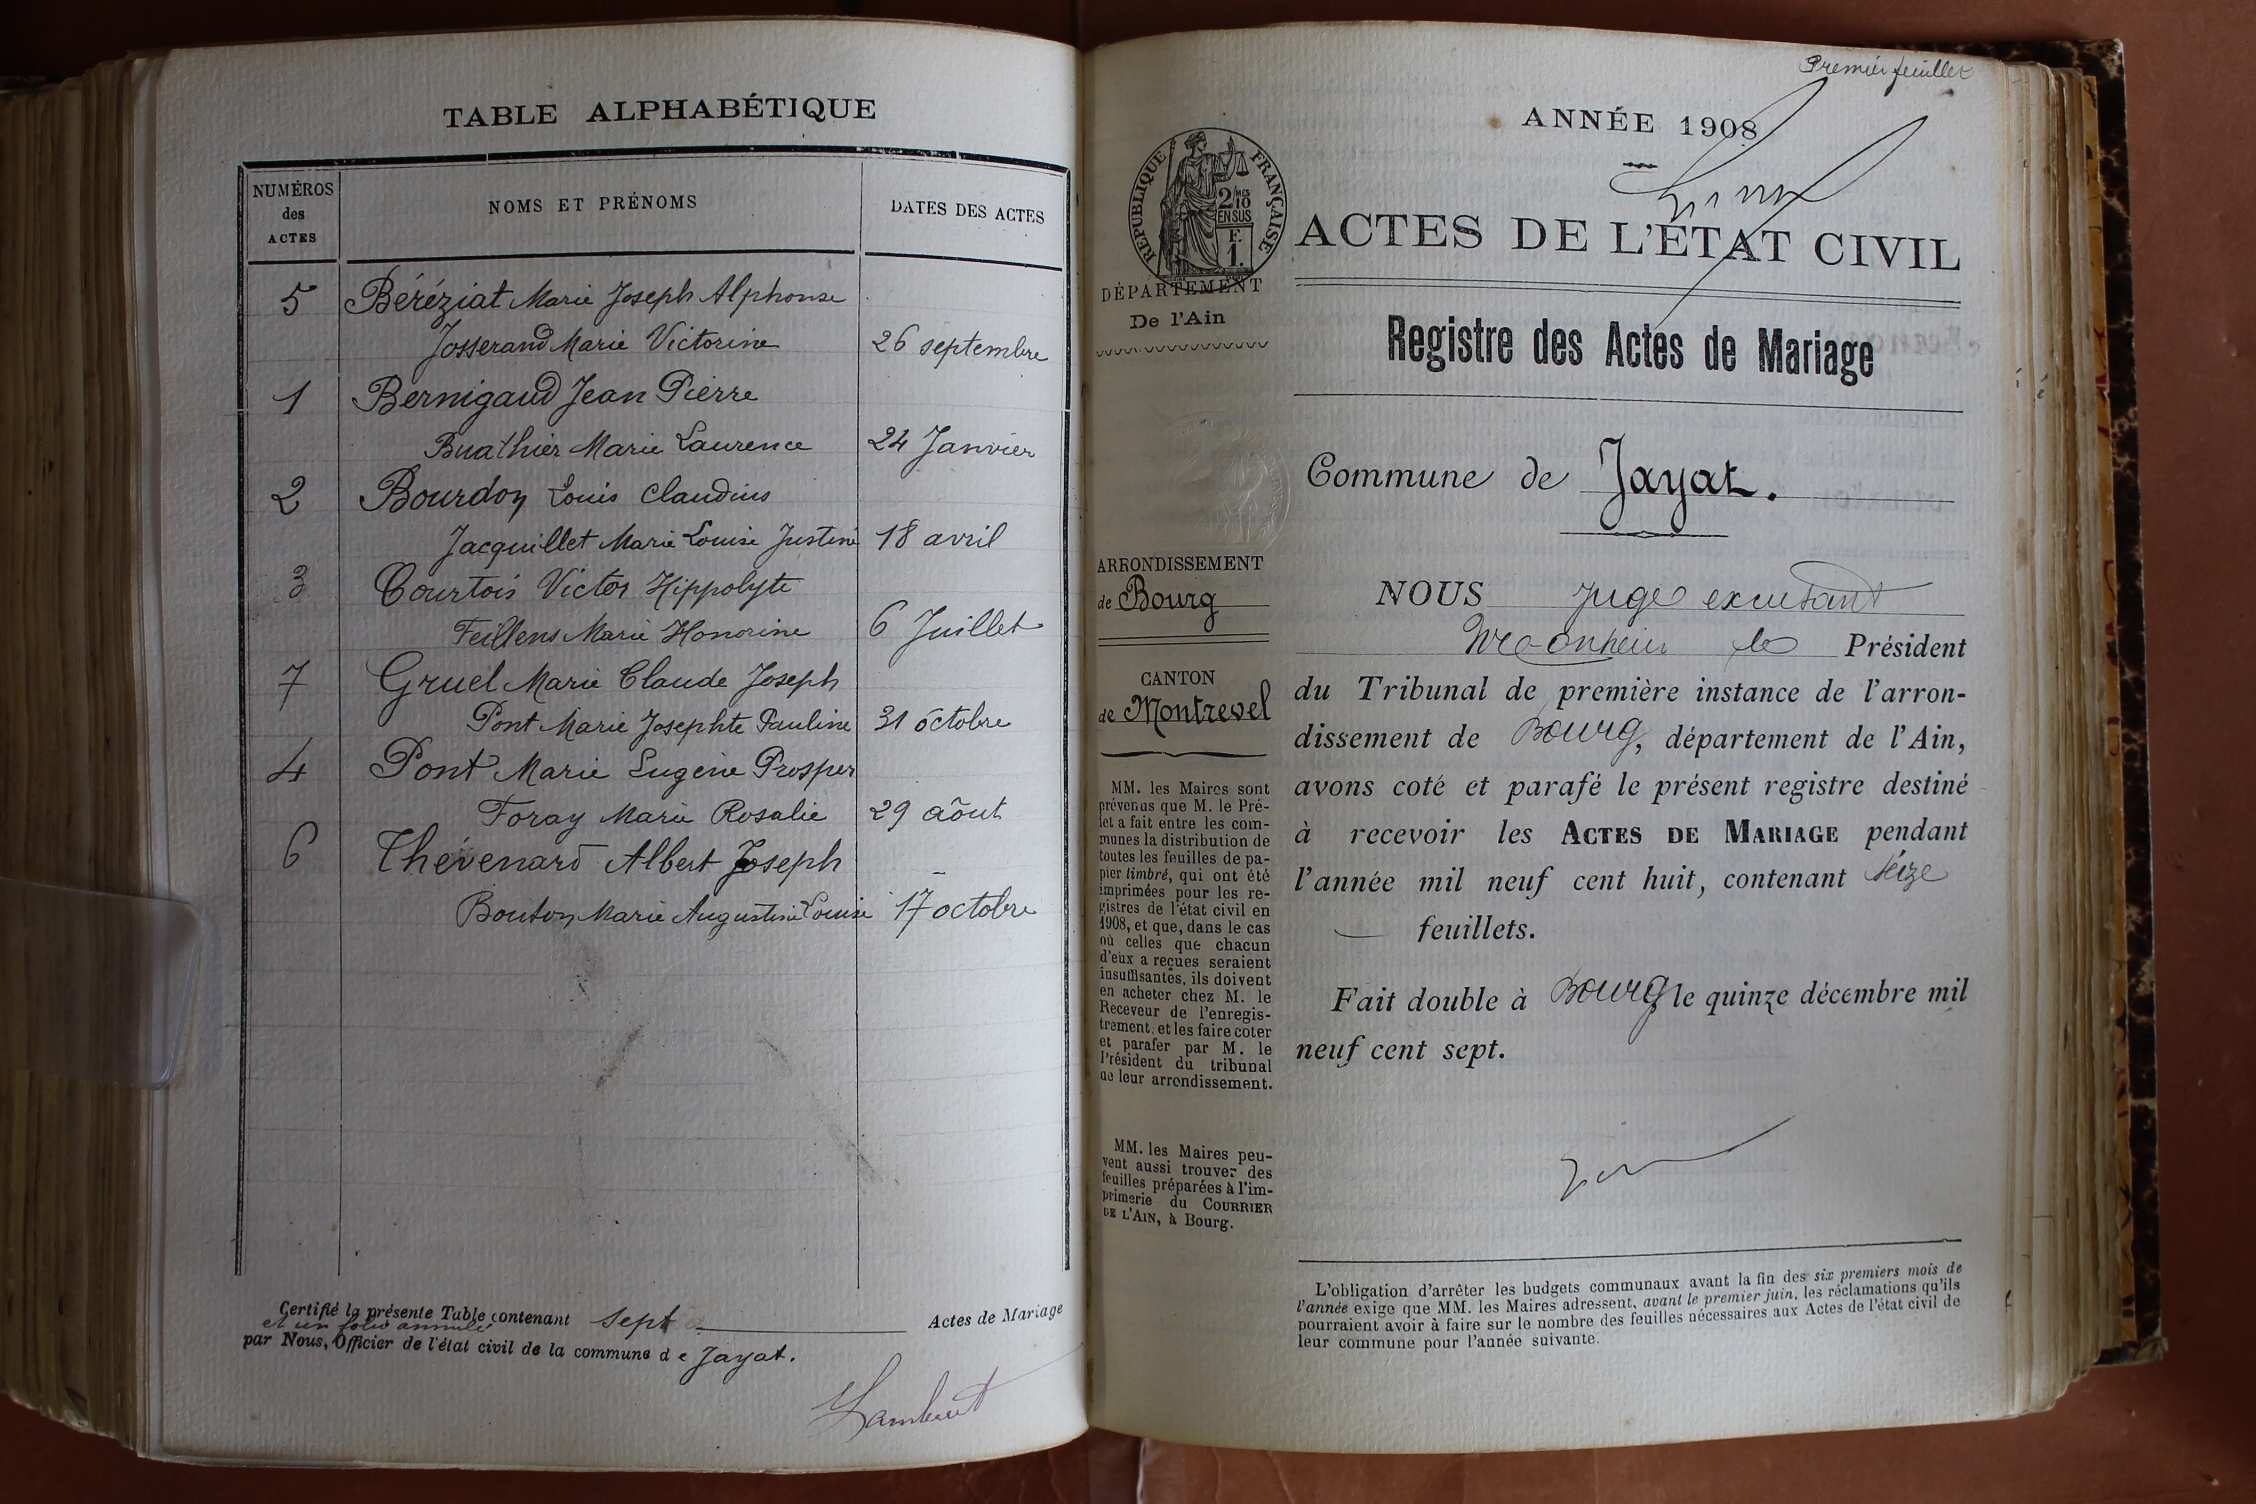 TABLE ALPHABÉTIQUE
NUMÉROS
des
ACTES
NOMS ET PRÉNOMS
DATES DES ACTES
5 Béréziat Marie Joseph Alphonse
Josserand Marie Victorine 26 septembre
1 Bernigaud Jean Pierre
Buathier Marie Laurence 24 Janvier
2 Bourdon Louis Claudius
Jacquillet Marie Louise Justine 18 avril
3 Courtois Victor Hippolyte
Feillens Marie Honorine 6 Juillet
7 Gruel Marie Claude Joseph
Pont Marie Josephte Pauline 31 octobre
4 Pont Marie Eugène Prosper
Foray Marie Rosalie 29 aôut
6 Thévenard Albert Joseph
Bouton Marie Augustine Louise 17 octobre
Certifié la présente Table contenant sept Actes de Mariage
et un folio annulé
par Nous, Officier de l'état civil de la commune de Jayat.
Lambert
Premier feuillet
ANNÉE 1908
RÉPUBLIQUE FRANÇAISE
2/10
EN SUS
F.
1.
ACTES DE L'ÉTAT CIVIL
DÉPARTEMENT
De l'Ain
Registre des Actes de Mariage
Commune de Jayat.
ARRONDISSEMENT
de Bourg
CANTON
de Montrevel
MM. les Maires sont
prévenus que M. le Pré-
fet a fait entre les com-
munes la distribution de
toutes les feuilles de pa-
pier timbré, qui ont été
imprimées pour les re-
gistres de l'état civil en
1908, et que, dans le cas
où celles que chacun
d'eux a reçues seraient
insuffisantes, ils doivent
en acheter chez M. le
Receveur de l'enregis-
trement, et les faire coter
et parafer par M. le
Président du tribunal
de leur arrondissement.
MM. les Maires peu-
vent aussi trouver des
feuilles préparées à l'im-
primerie du COURRIER
DE L'AIN, à Bourg.
NOUS Juge
le Président
du Tribunal de première instance de l'arron-
dissement de Bourg, département de l'Ain,
avons coté et parafé le présent registre destiné
à recevoir les ACTES DE MARIAGE pendant
l'année mil neuf cent huit, contenant seize
feuillets.
Fait double à Bourg le quinze décembre mil
neuf cent sept.
L'obligation d'arrêter les budgets communaux avant la fin des six premiers mois de
l'année exige que MM. les Maires adressent, avant le premier juin, les réclamations qu'ils
pourraient avoir à faire sur le nombre des feuilles nécessaires aux Actes de l'état civil de
leur commune pour l'année suivante.